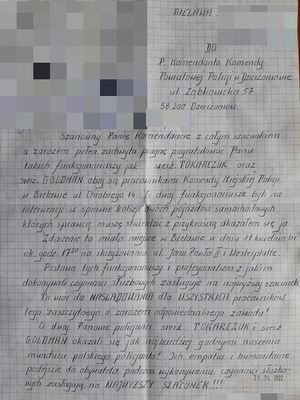 BIELAWA
DO
P. Komendanta Komendy
Powiatowej Policji w Dzierżoniowie
ul. Ząbkowicka 57
58-200 Dzierżoniów
Szanowny Panie Komendancie z całym szacunkiem
a zarazem pełen zachwytu pragnę pogratulować Panu
takich funkcjonariuszy jak sierż. TOKARCZUK oraz
sierż. GOLDMAN obaj są pracownikami Komendy Miejskiej Policji
w Bielawie ul. 14. Ci dwaj funkcjonariusze byli na
interwencji w sprawie kolizji dwóch pojazdów samochodowych
których sprawcą muszę stwierdzić z przykrością okazałem się ja
Zdarzenie to miało miejsce w Bielawie w dniu 11 kwietnia br.
ok. godz. 17 na skrzyżowaniu ul. Jana Pawła II i Westerplatte.
Postawa tych funkcjonariuszy i profesjonalizm z jakim
dokonywali czynności służbowych zasługuje na najwyższy szacunek
To wzór do NAŚLADOWANIA dla WSZYSTKICH pracowników
tego zaszczytnego a zarazem odpowiedzialnego zawodu!
Ci dwaj Panowie policjanci sierż. TOKARCZUK i sierż
GOLDMAN okazali się jak najbardziej godnymi noszenia
munduru polskiego policjanta! Ich empatia i humanitarne
podejście do obywatela podczas wykonywania czynności służbo-
wych zasługują na NAJWYŻSZY SZACUNEK!!!